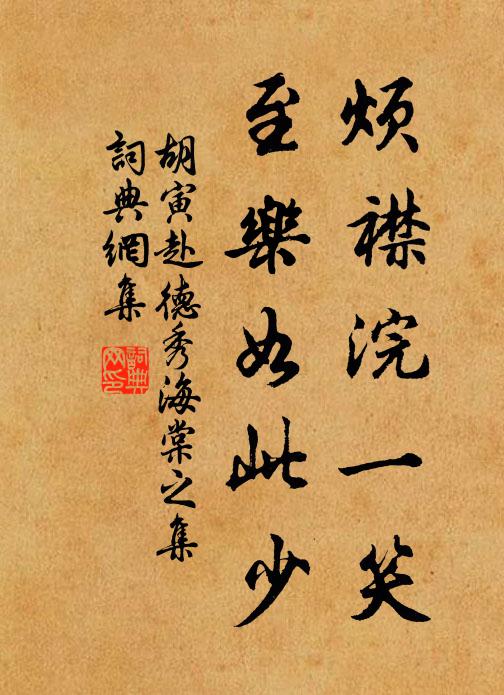 煩襟浣一笑
至樂如此少
胡寅赴德秀海棠之集
詞典網集
詞典網印